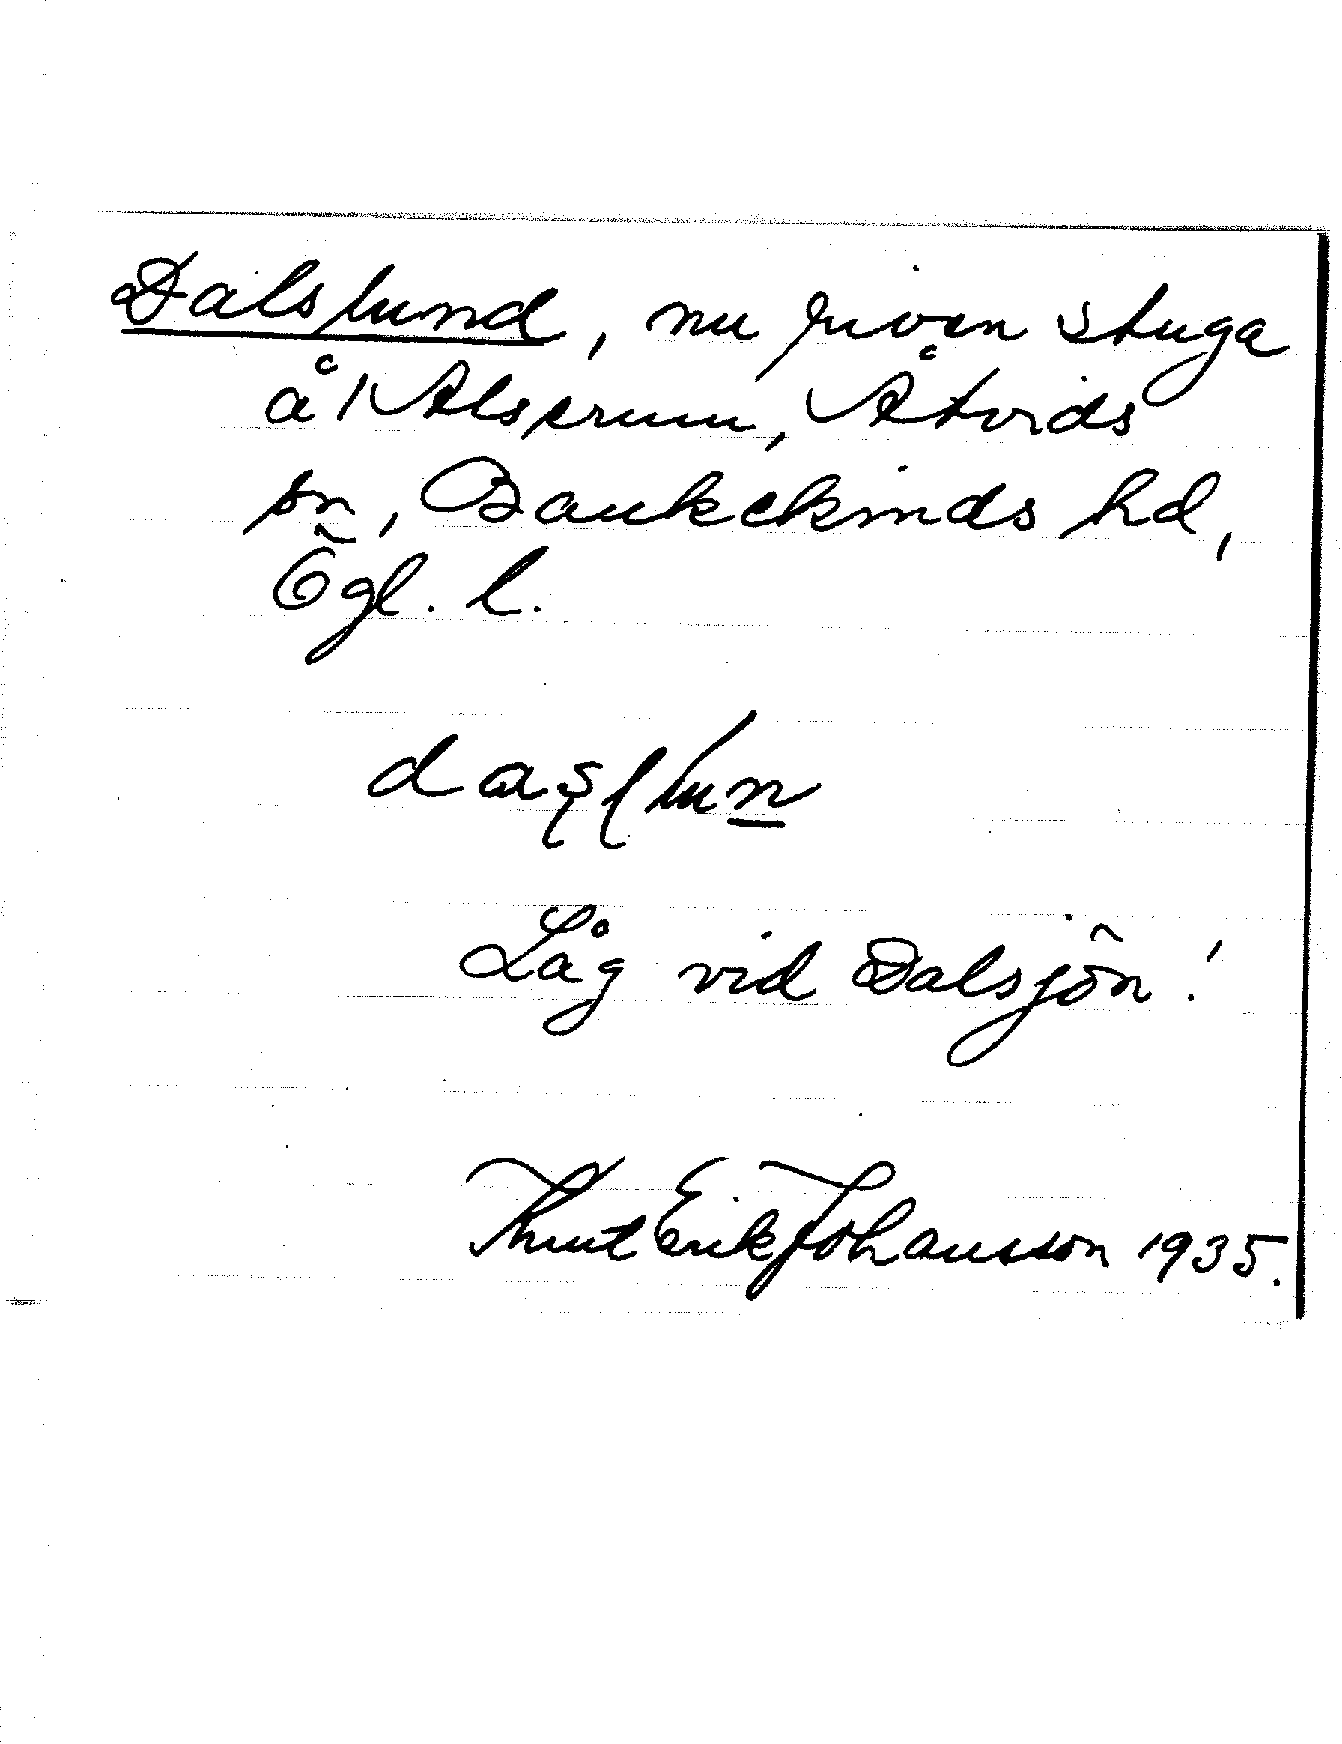 Dalslund, nu riven stuga
å 1 Alserum, Åtvids
sn, Bankekinds hd,
Ögl. l.
daşļlun
Låg vid Dalsjön!
Knut Erik Johansson 1935.